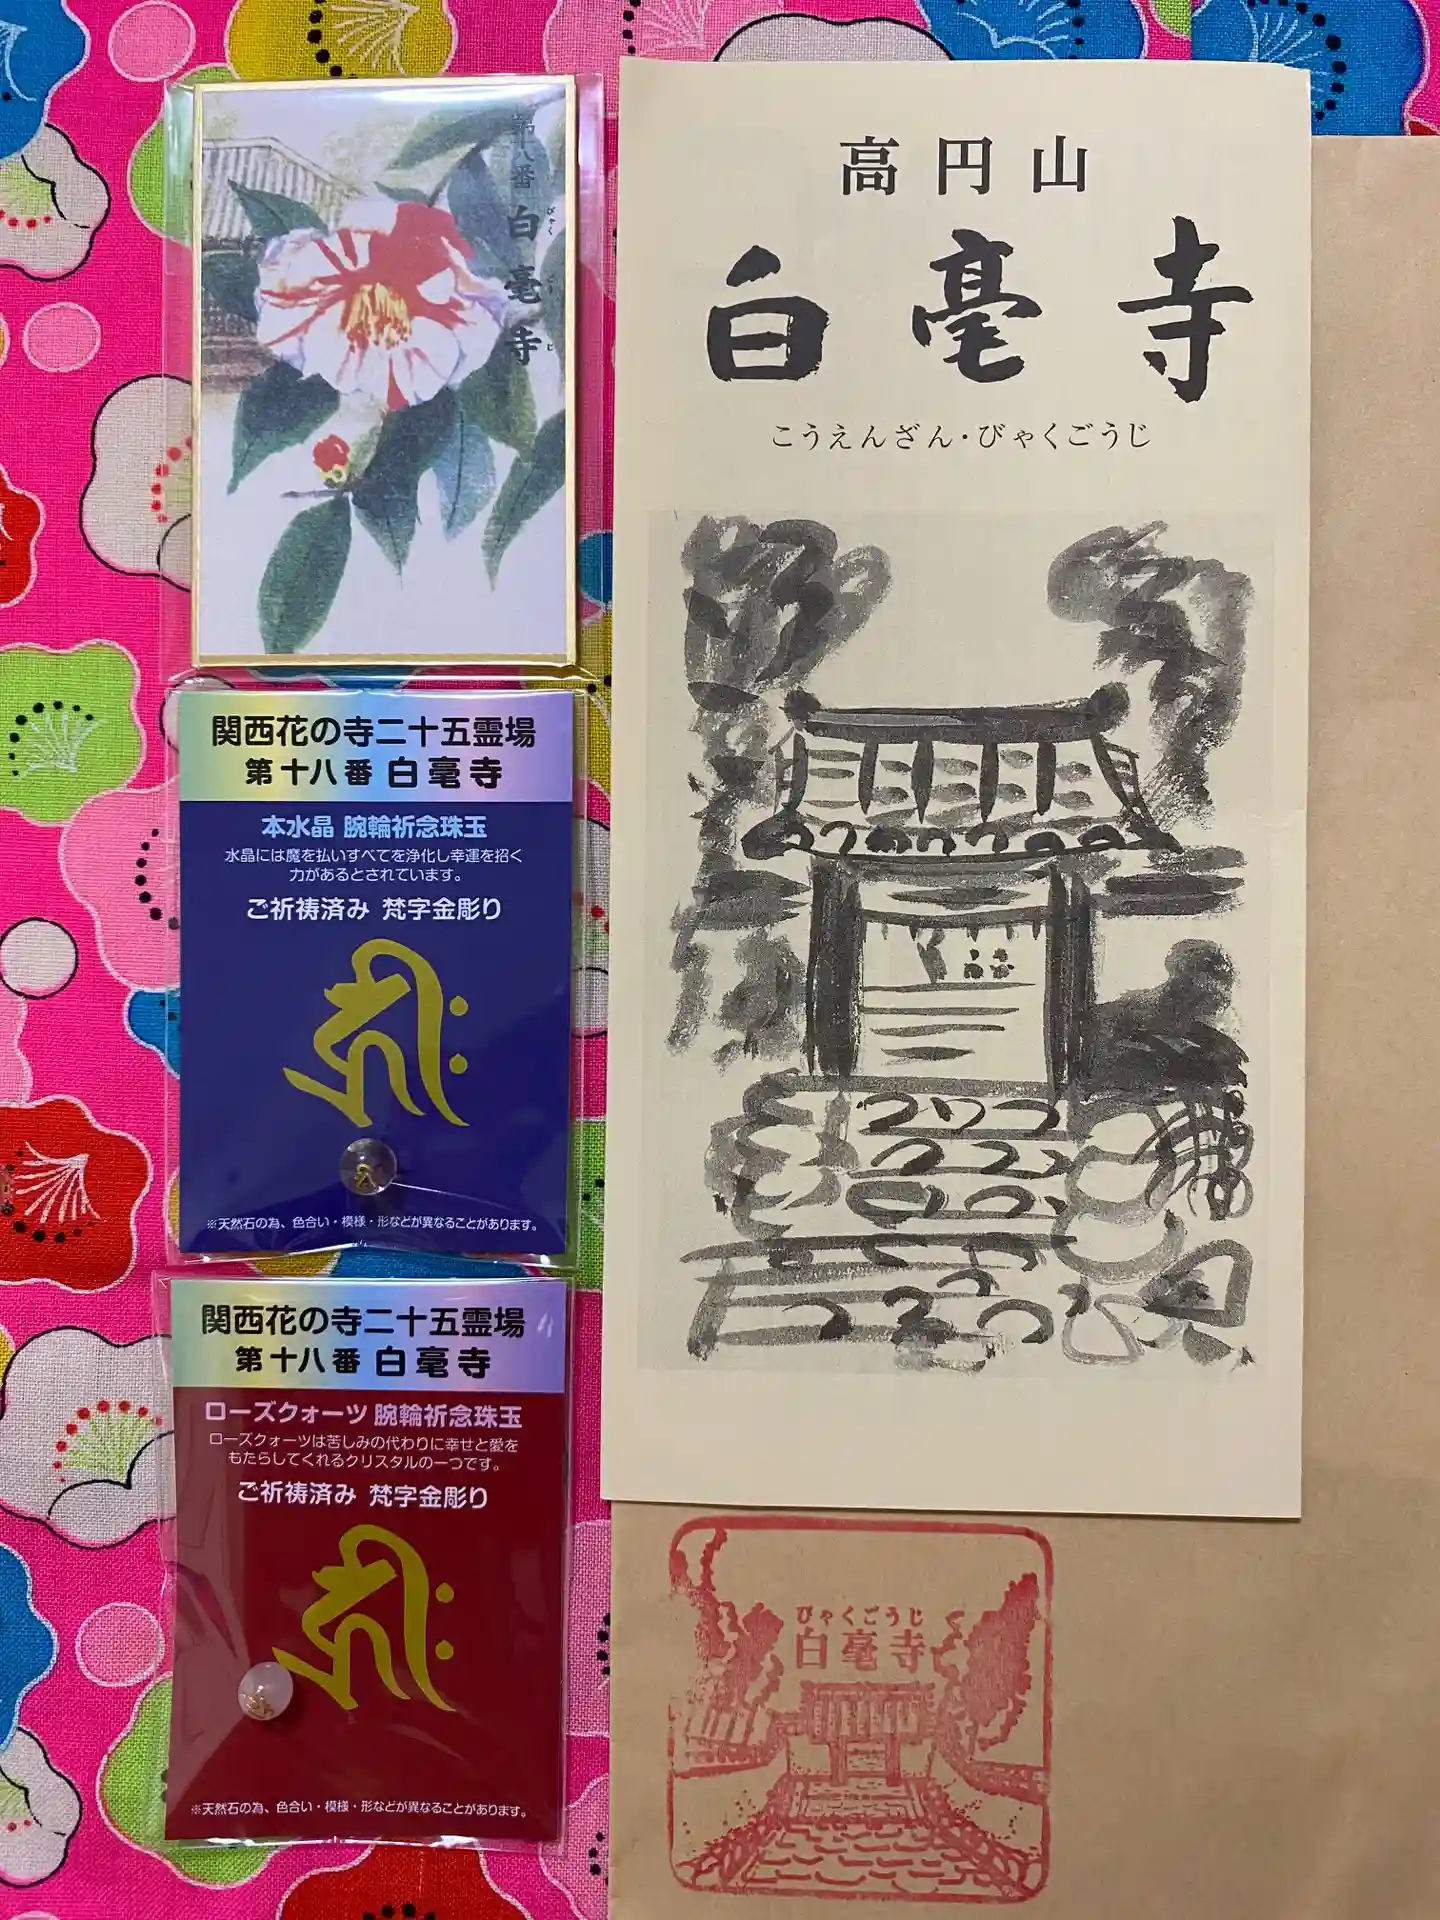 第十八番 白毫寺
びゃく ごう じ
関西花の寺二十五霊場
第十八番 白毫寺
本水晶 腕輪祈念珠玉
水晶には魔を払いすべてを浄化し幸運を招く
力があるとされています。
ご祈祷済み 梵字金彫り
※天然石の為、色合い・模様・形などが異なることがあります。
関西花の寺二十五霊場
第十八番 白毫寺
ローズクォーツ 腕輪祈念珠玉
ローズクォーツは苦しみの代わりに幸せと愛を
もたらしてくれるクリスタルの一つです。
ご祈祷済み 梵字金彫り
※天然石の為、色合い・模様・形などが異なることがあります。
高円山
白毫寺
こうえんざん・びゃくごうじ
びゃくごうじ
白毫寺